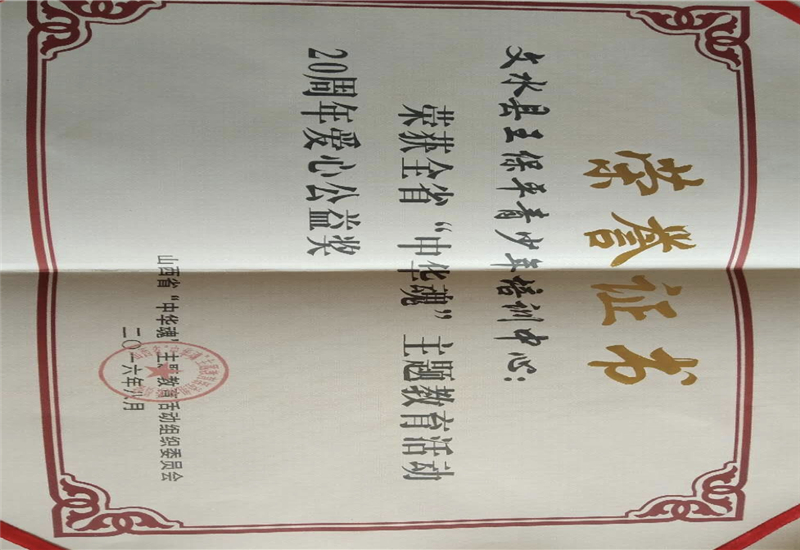 荣誉证书
文水县王保平青少年培训中心:
荣获全省“中华魂”主题教育活动
20周年爱心公益奖
山西省“中华魂”主题教育活动组织委员会
二〇一六年八月